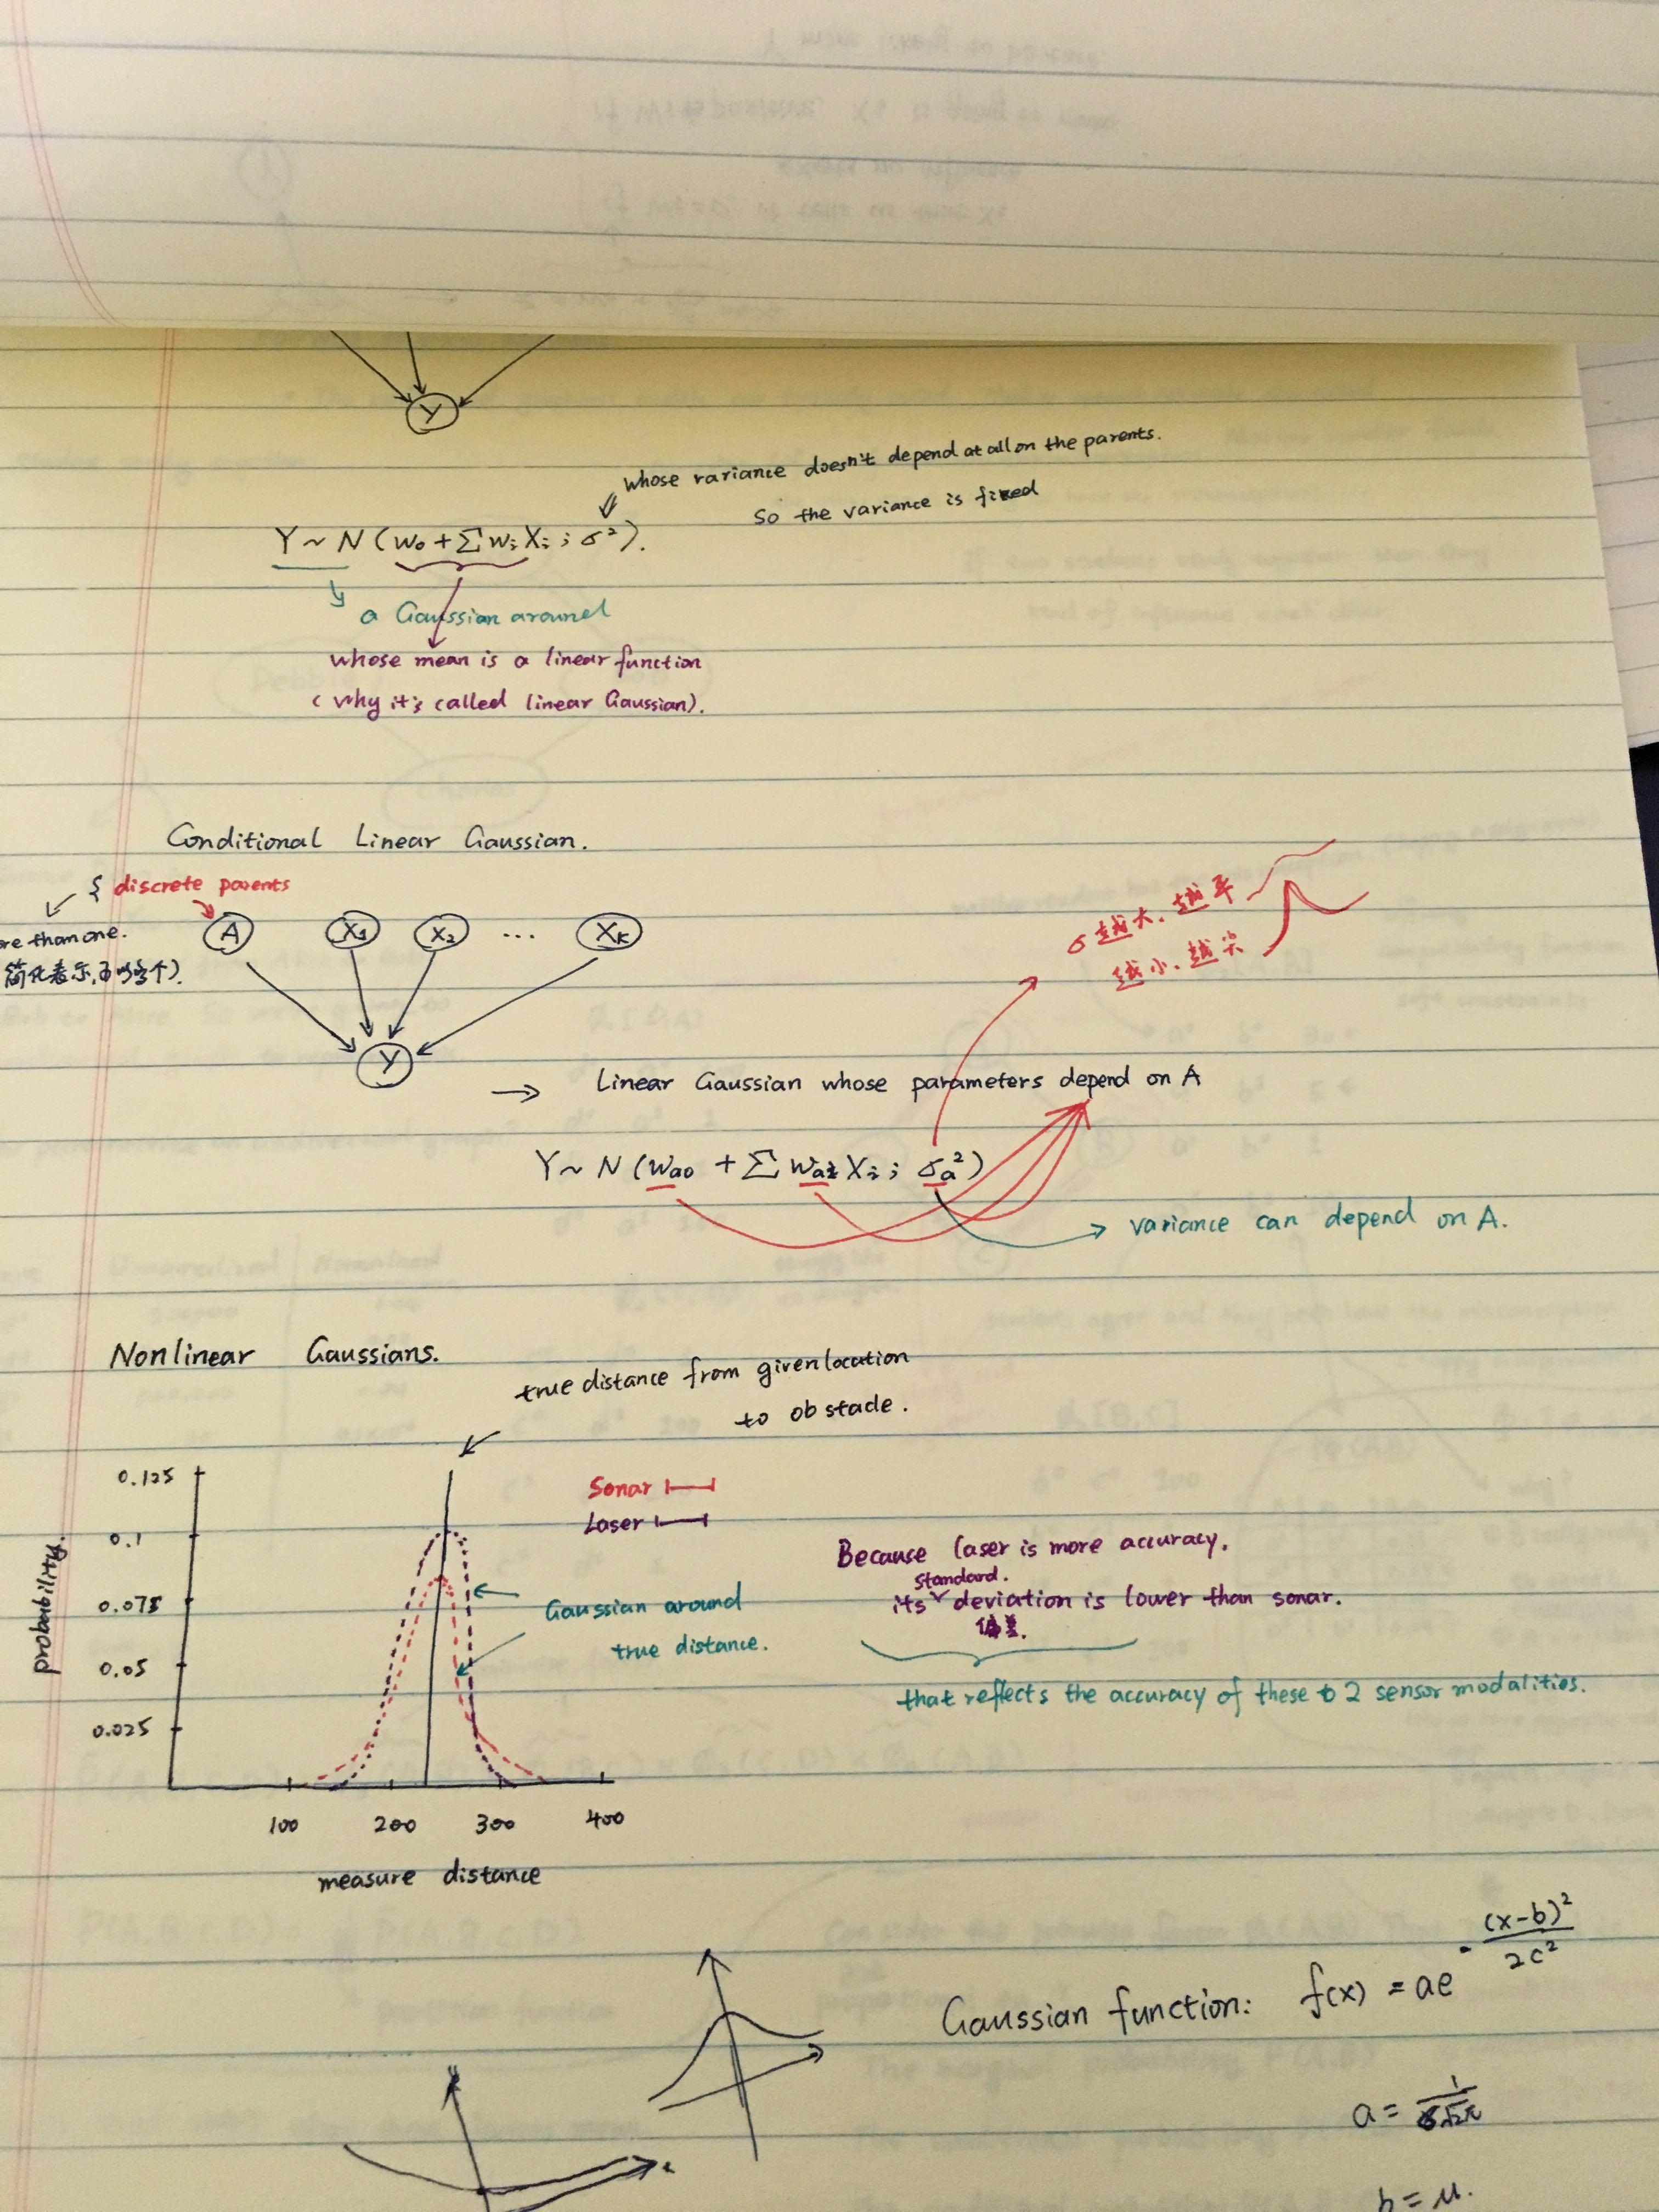 Y
whose variance doesn't depend at all on the parents.
So the variance is fixed
Y ~ N (w₀ + Σ wᵢ Xᵢ ; σ²).
a Gaussian around
whose mean is a linear function
(why it's called linear Gaussian).
Conditional Linear Gaussian.
discrete parents
re than one.
A X₁ X₂ ... Xₖ
Y
σ 越大、越平
越小、越尖
Linear Gaussian whose parameters depend on A
Y ~ N (wₐ₀ + Σ wₐᵢ Xᵢ ; σₐ²)
variance can depend on A.
Nonlinear Gaussians.
true distance from given location
to obstade.
0.125
0.1
0.075
0.05
0.025
probability.
Sonar
Laser
Gaussian around
true distance.
Because laser is more accuracy.
standard.
its deviation is lower than sonar.
偏差.
that reflects the accuracy of these 2 sensor modalities.
100 200 300 400
measure distance
Gaussian function: f(x) = ae^-(x-b)²/2c²
a = 1/σ√2π
b = μ.